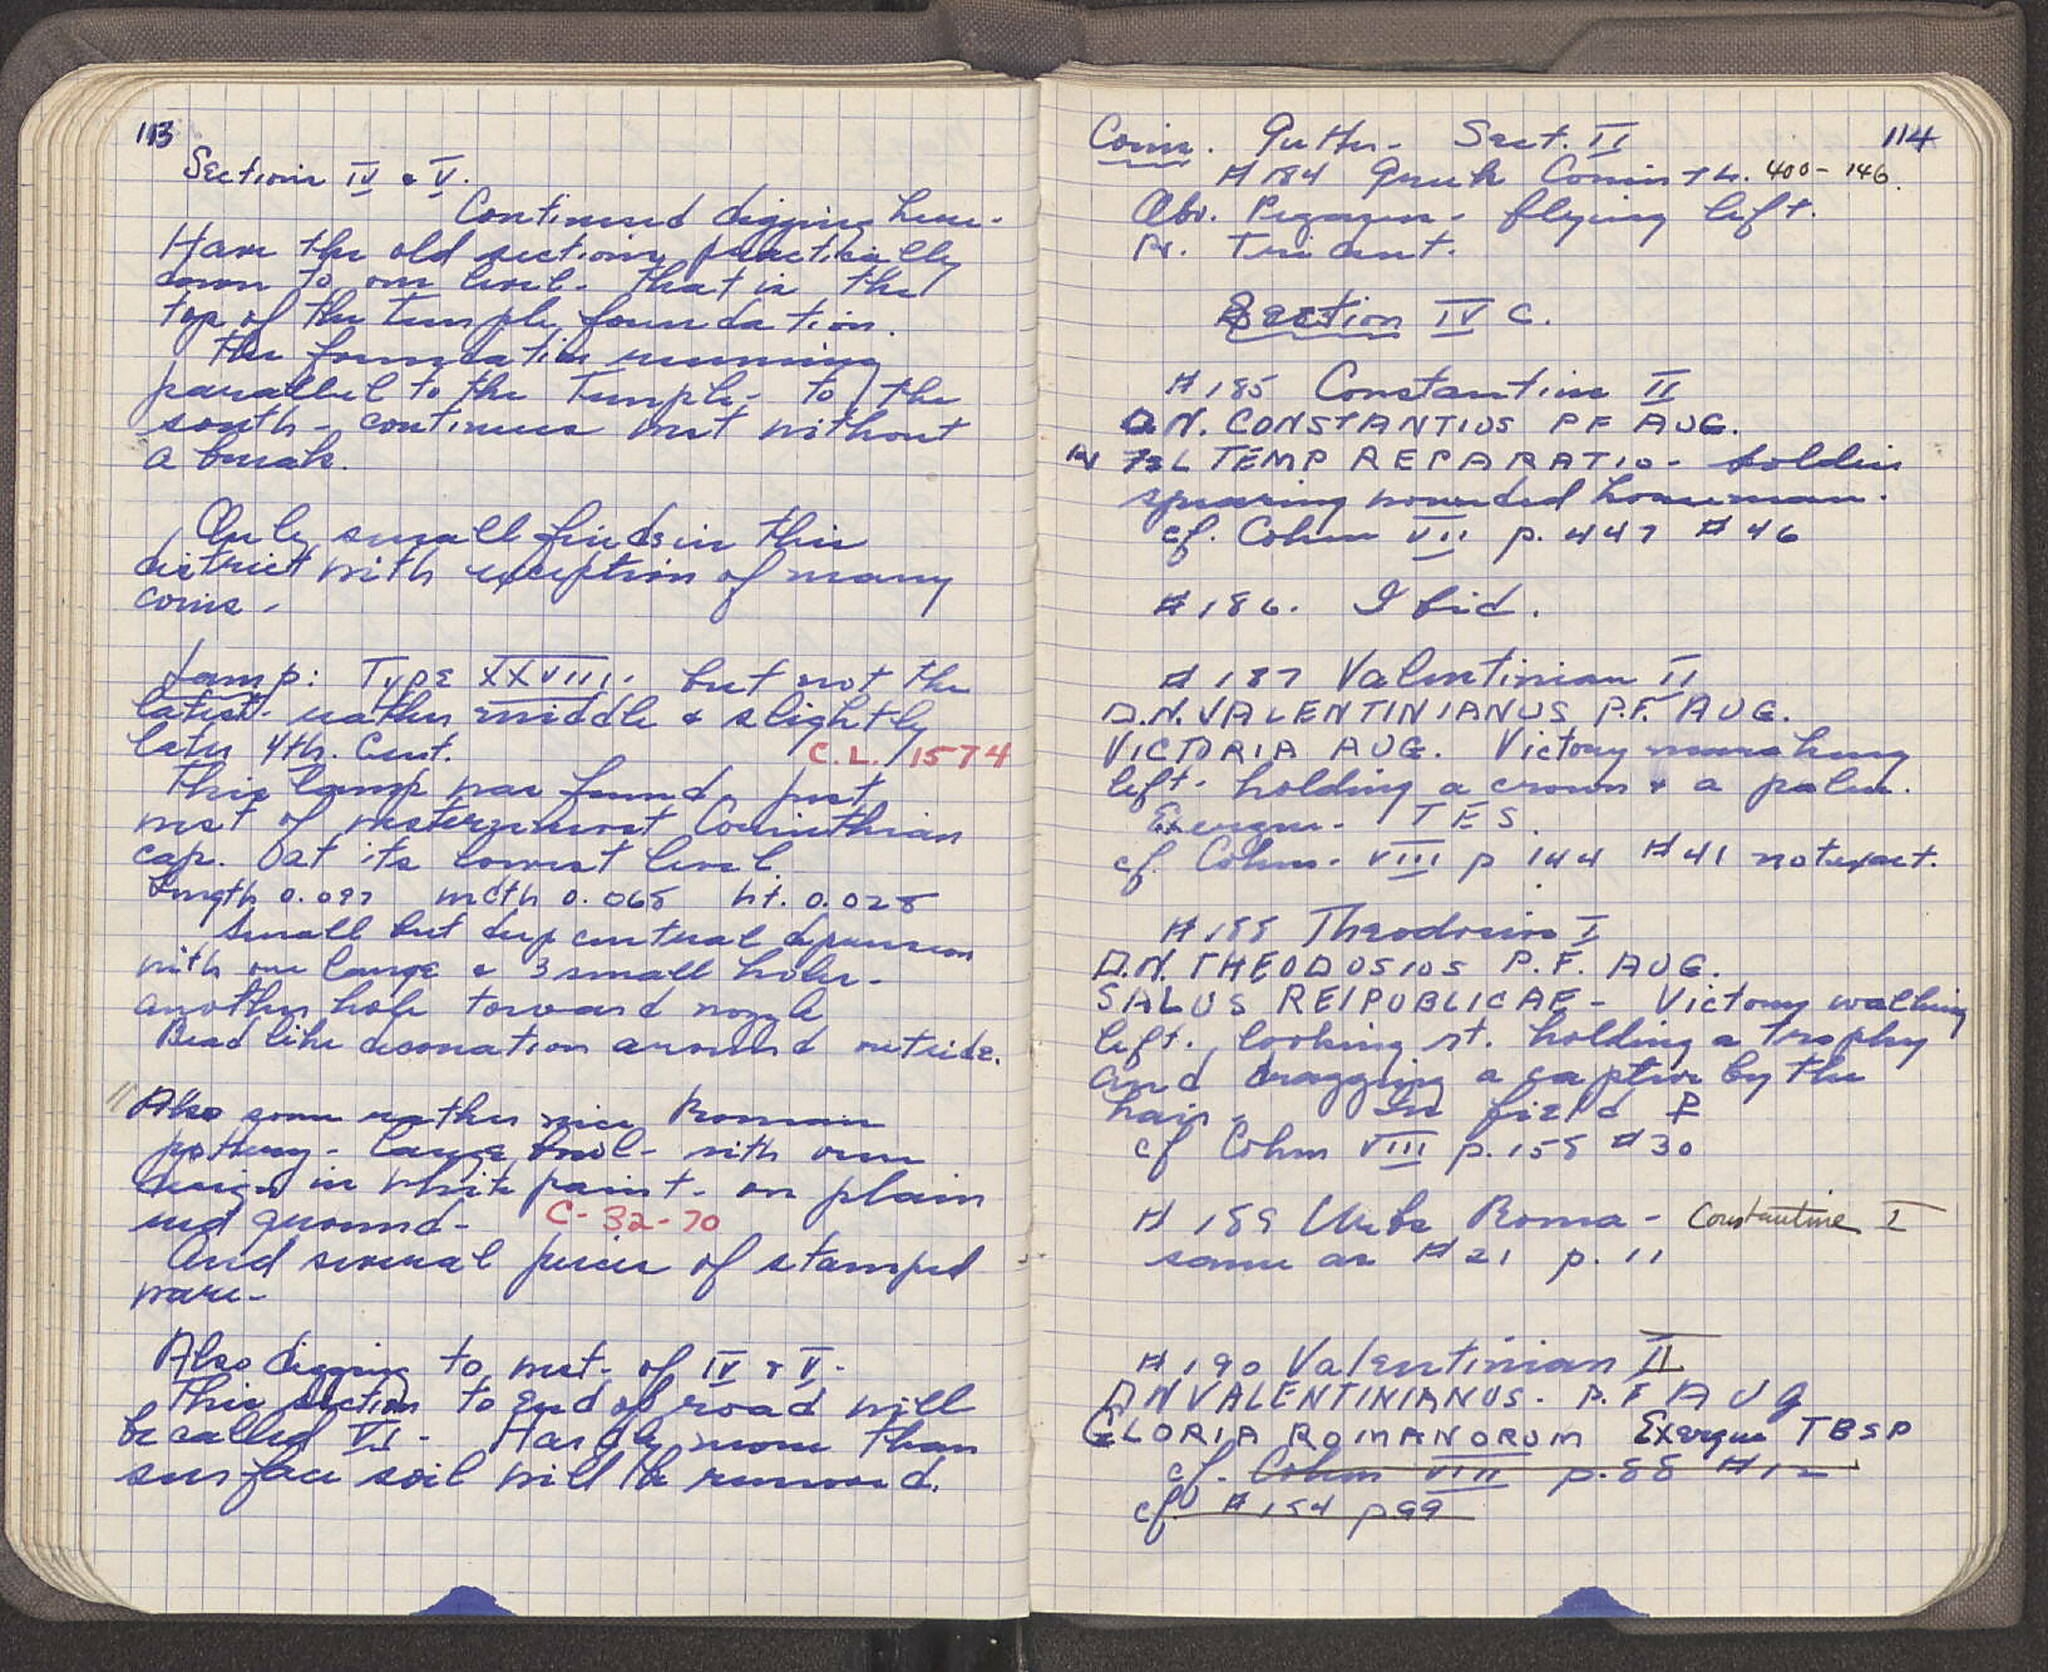 113
Sections IV & V.
Continued digging here.
Have the old sections practically
down to our level - that is the
top of the Temple foundation.
The foundation running
parallel to the Temple - to the
south - continues west without
a break.
Only small finds in this
district with exception of many
coins -
Lamp: Type XXVIII. but not the
latest - rather middle & slightly
later 4th. Cent. C.L. 1574
This lamp was found just
west of westernmost Corinthian
cap. at its lowest level.
Length 0.097 wdth 0.068 ht. 0.028
Small but deep central depression
with one large & 3 small holes -
another hole toward nozzle
Bead like decoration around outside.
Also some rather nice Roman
pottery - large bowl - with
design in white paint - on plain
red ground - C-32-70
And several pieces of stamped
ware -
Also digging to west - of IV & V -
This section to end of road will
be called VI - Hardly more than
surface soil will be removed.
114
Coins. Gutter - Sect. II
# 184 Greek Corinth. 400 - 146.
Obv. Pegasus - flying left.
Rv. Trident.
Section IV C.
# 185 Constantius II
D.N. CONSTANTIUS PF AUG.
Rv FEL TEMP REPARATIO - Soldier
spearing wounded horseman.
cf. Cohen VII p. 447 # 46
# 186. Ibid.
# 187 Valentinian II
D.N. VALENTINIANUS P.F. AUG.
VICTORIA AUG. Victory marching
left - holding a crown & a palm.
Exergue - TES.
cf. Cohen - VIII p 144 # 41 not exact.
# 188 Theodosius I
D.N. THEODOSIUS P.F. AUG.
SALUS REIPUBLICAE - Victory walking
left. looking rt. holding a trophy
and dragging a captive by the
hair. In field ⳨
cf Cohen VIII p. 158 # 30
# 189 Urbs Roma - Constantine I
same as # 21 p. 11
# 190 Valentinian II
DN VALENTINIANUS - P.F AUG
GLORIA ROMANORUM Exergue TBSP
cf. Cohen VIII p. 88 # 12
cf # 154 p 99